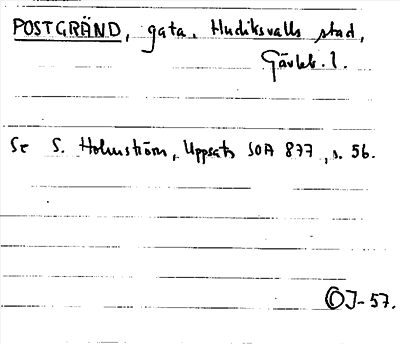 POSTGRÄND, gata, Hudiksvalls stad,
Gävleb. l.
Se S. Holmström, Uppsats SOA 877, s. 56.
OJ-57.